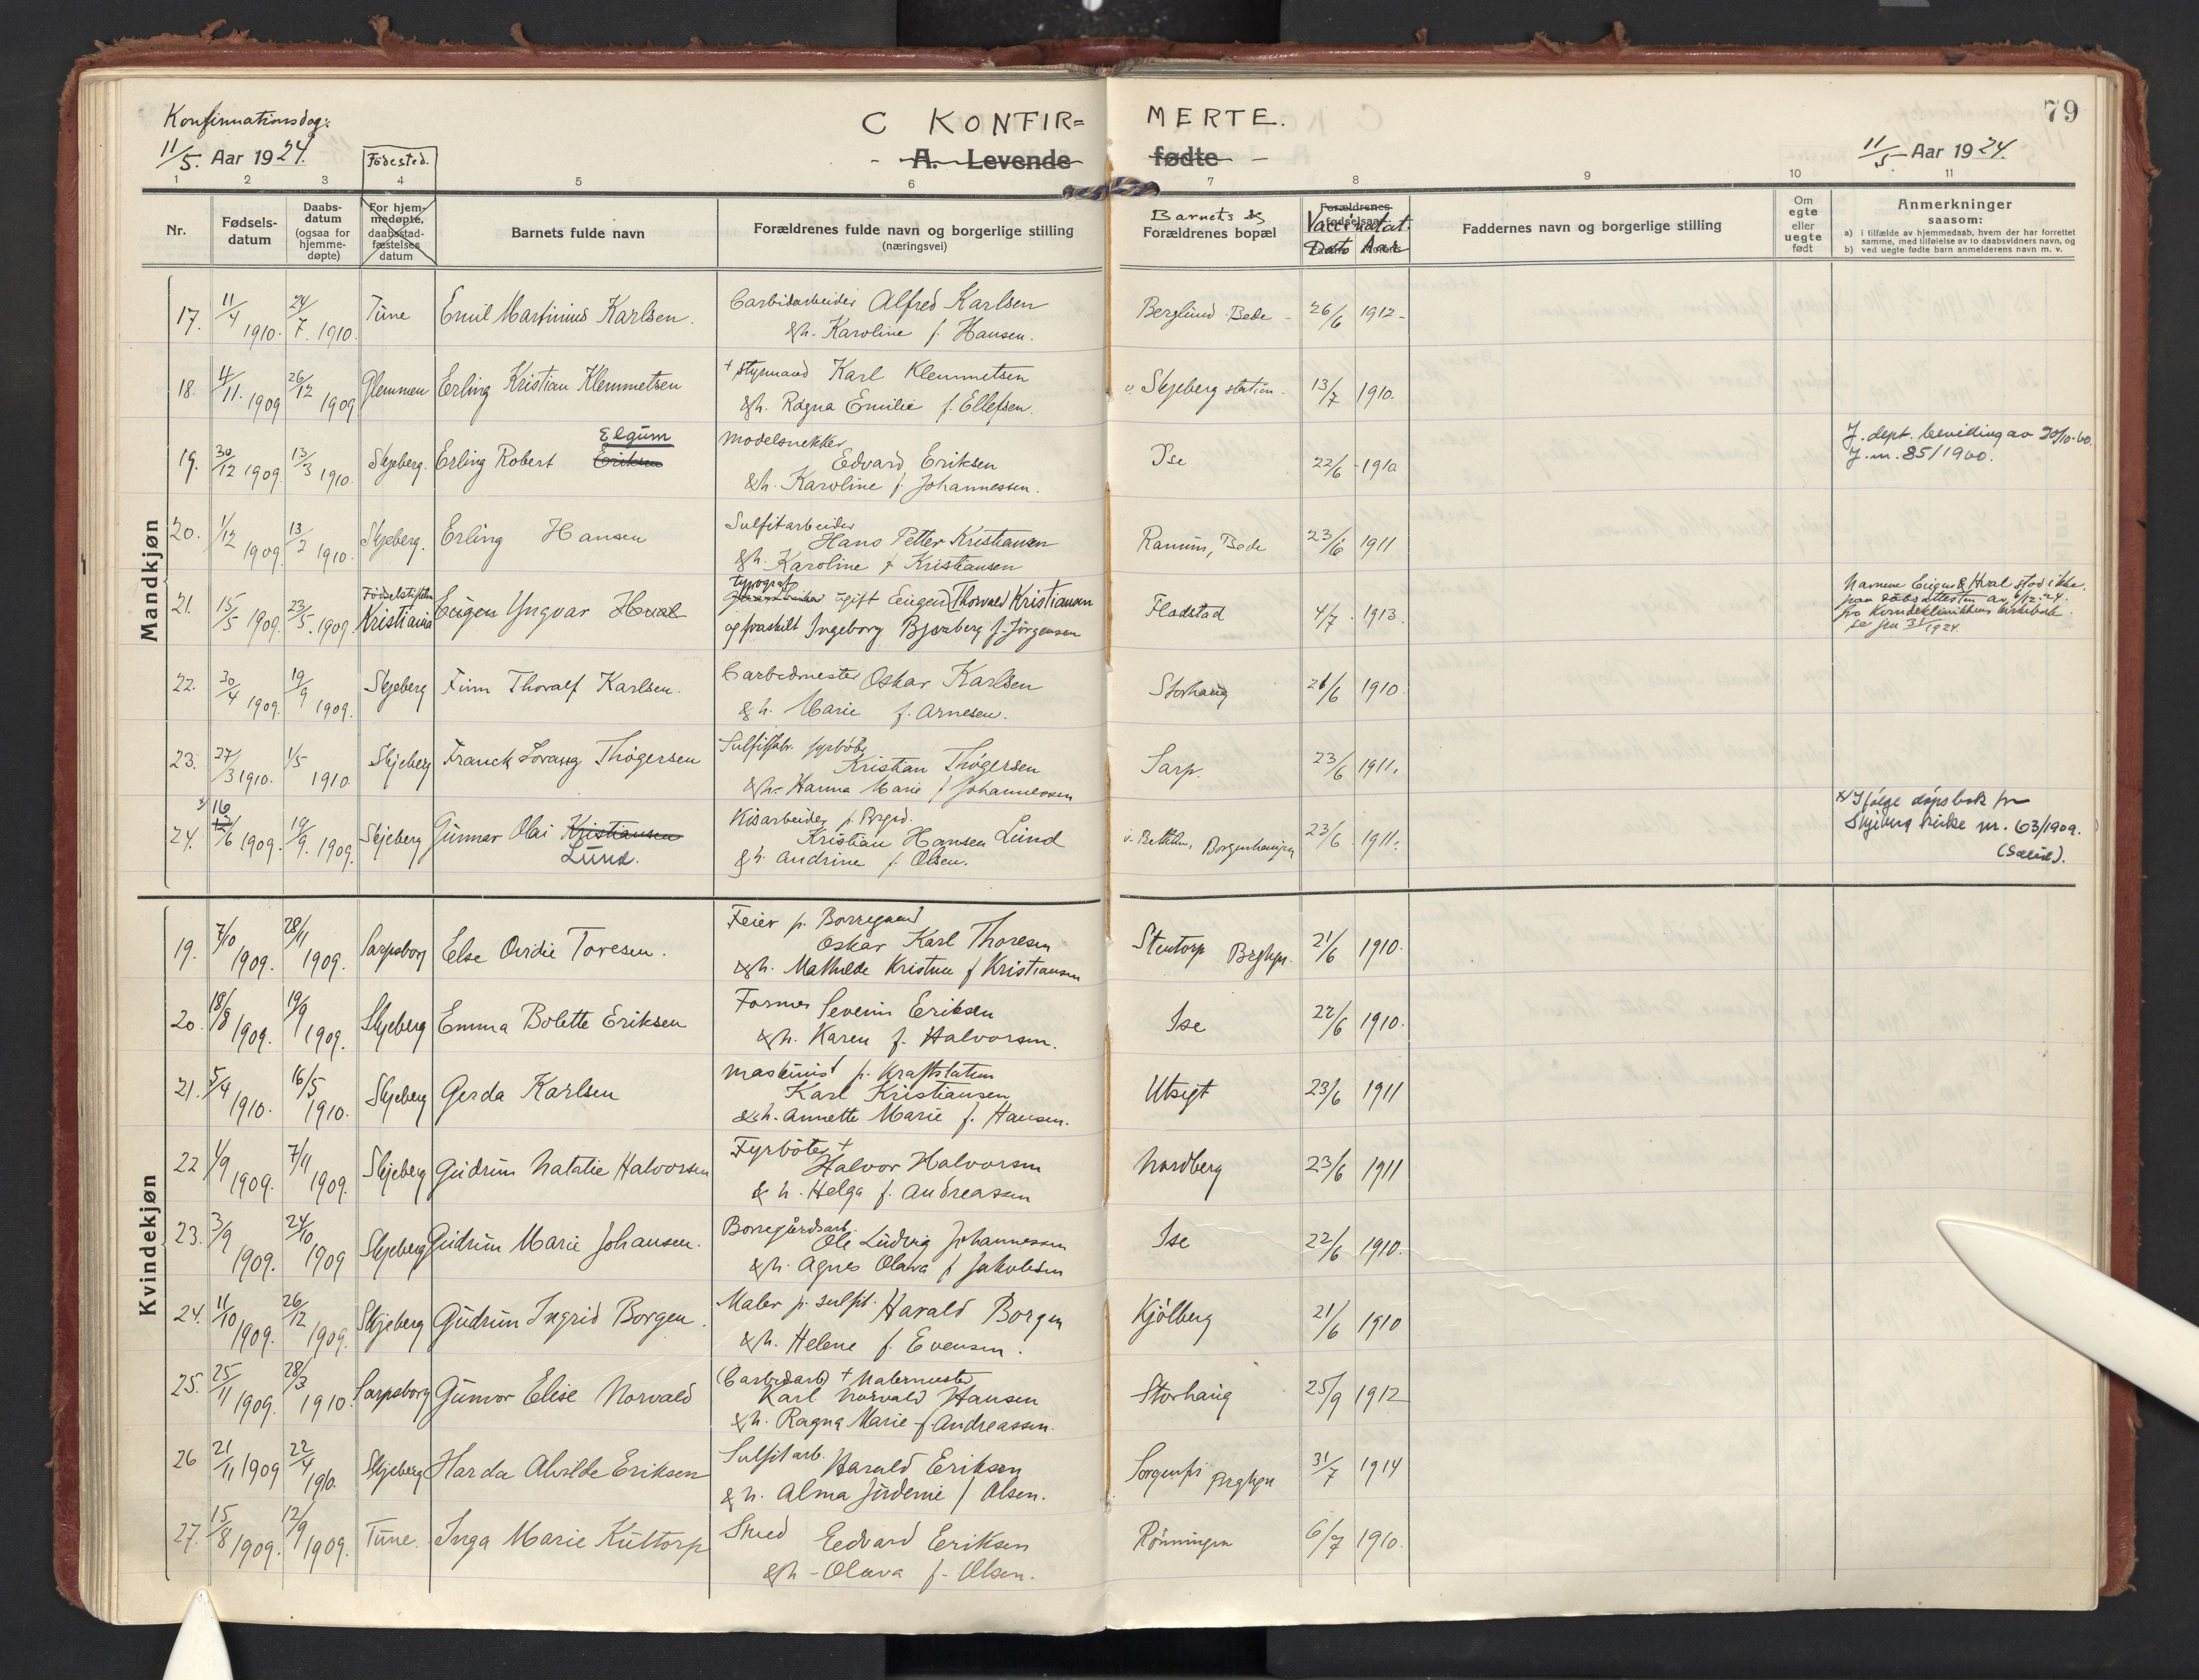 79
Konfirmationsdag:
11/5. Aar 1924.
C KONFIR= MERTE.
A. Levende fødte
11/5 Aar 1924.
Fødested.
1 2 3 4 5 6 7 8 9 10 11
Nr.
Fødsels-
datum
Daabs-
datum
(ogsaa for
hjemme-
døpte)
For hjem-
medøpte,
daabsstad-
fæstelses
datum
Barnets fulde navn
Forældrenes fulde navn og borgerlige stilling
(næringsvei)
Barnets &
Forældrenes bopæl
Forældrenes
fødselsaar
Vaccinatat.
Dato Aar
Faddernes navn og borgerlige stilling
Om
egte
eller
uegte
født
Anmerkninger
saasom:
a) i tilfælde av hjemmedaab, hvem der har forrettet
samme, med tilføielse av to daabsvidners navn, og
b) ved uegte fødte barn anmelderens navn m. v.
Mandkjøn
17. 11/4 1910. 24/7. 1910. Tune Emil Martinius Karlsen. Carbidarbeider Alfred Karlsen Berglund Bede - 26/6 1912-
&h. Karoline f. Hansen.
18. 4/11. 1909 26/12 1909 Glemmen Erling Kristian Klemmetsen + Styrmand Karl Klemmetsen v. Skjeberg station. 13/7 1910.
&h. Ragna Emilie f. Ellefsen.
19. 30/12 1909. 13/3 1910. Skjeberg. Erling Robert Eriksen Elgum Modelsnekker
Edvard Eriksen Ise 22/6 1910 J. dept. bevilling av 20/10-60.
&h. Karoline f. Johannessen. J.nr. 85/1960.
20. 1/12 1909. 13/2 1910. Skjeberg. Erling Hansen Sulfitarbeider
Hans Petter Kristiansen Ramm, Bede 23/6 1911
&h. Karoline f Kristiansen
21. 15/5 1909. 23/5. 1909. Fødselsstiftelsen Kristiania Eugen Yngvar Hval typograf
ugift Eugen Thorvald Kristiansen Fladstad 4/7 1913. Navnene Eugen & Hval stod ikke
og fraskilt Ingeborg Bjerzberg f. Jørgensen paa daabsattesten av 6/12-24.
fra Kvindeklinikkens kirkebok.
22. 30/4 1909. 19/9 1909. Skjeberg Finn Thoralf Karlsen. Carbidmester Oskar Karlsen Storhaug 21/6 1910.
& h. Marie f. Arnesen.
23. 27/3 1910. 1/5 1910 Skjeberg Franck Lorang Thøgersen Sulfitfabr. fyrbøter
Kristian Thøgersen Sarp. 23/6 1911.
&h. Hanna Marie f Johannessen
24. x) 16/6 1909. 19/9. 1909. Skjeberg Gunnar Olai Kristiansen Lund. Kisarbeider p. Brgrd.
Kristian Hansen Lund Borgenhaugen 23/6 1911. x) Ifølge dåpsbok for
& h. Andrine f Olsen. Skjeberg kirke nr. 63/1909.
Kvindekjøn
19. 7/10 1909. 28/11 1909. Sarpsborg Else Ovidie Toresen. Feier p. Borregaard
Oskar Karl Thoresen Stentorp Brghgn. 21/6 1910.
&h. Mathilde Kristine f Kristiansen
20. 18/8 1909. 19/9 1909. Skjeberg Emma Bolette Eriksen Former Severin Eriksen Ise 22/6 1910.
&h. Karen f. Halvorsen.
21. 5/4 1910. 16/5 1910. Skjeberg Gerda Karlsen Maskinist p. Kraftstation
Karl Kristiansen Utsigt 23/6 1911
& h. Annette Marie f. Hansen.
22 1/9 1909. 7/11 1909. Skjeberg Gudrun Natalie Halvorsen Fyrbøter +
Halvor Halvorsen Nordberg 23/6 1911
& h. Helga f. Andreassen
23. 3/9 1909. 24/10 1909 Skjeberg Gudrun Marie Johansen. Borregårdsarb.
Ole Ludvig Johannessen Ise 22/6 1910.
&h. Agnes Olava f Jakobsen
24. 11/10 1909. 26/12 1909. Skjeberg Gudrun Ingrid Borgen. Maler p. sulfit. Harald Borgen Kjølberg 21/6 1910
&h. Helene f. Evensen.
25. 25/11 1909. 28/3 1910. Sarpsborg Gunvor Elise Norvald (Carbidarb) + Malermester
Karl Norvald Hansen Storhaug 25/9 1912
&h. Ragna Marie f Andreassen.
26 21/11 1909 22/4 1910. Skjeberg Harda Alvilde Eriksen Sulfitarb.
Harald Eriksen Sorgenfri Brghgn 31/7 1914
& h. Alma f Olsen.
27. 15/8 1909. 12/9 1909. Tune. Inga Marie Kultorp Smed Edvard Eriksen Rønningen 6/7 1910.
&h - Olava f. Olsen.